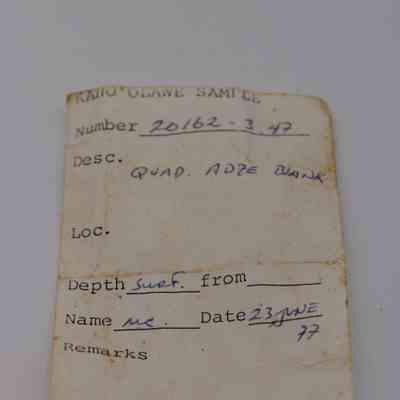 KAHO'OLAWE SAMPLE
Number 20162-3.47
Desc.
QUAD. ADZE BLANK
Loc.
Depth surf. from
Name MC Date 23 JUNE
77
Remarks